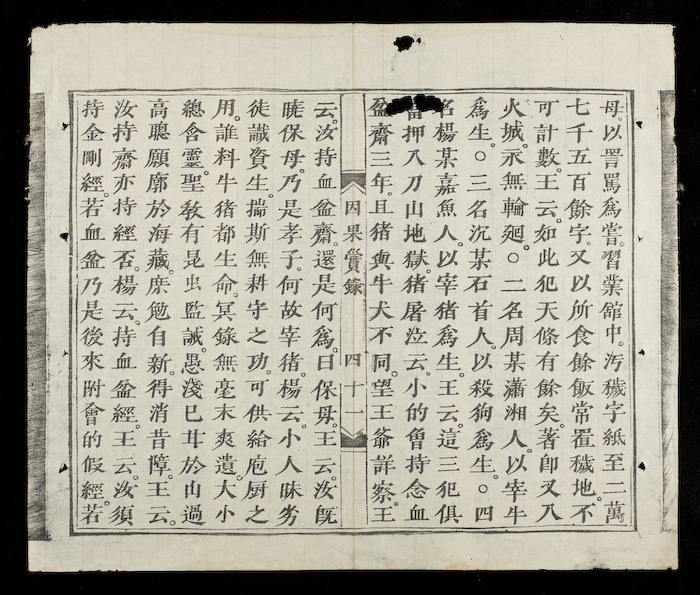 母。以詈罵爲嘗。習業館中。汚穢字紙至二萬
七千五百餘字。又以所食餘飯常置穢地。不
可計數。王云。如此犯天條有餘矣。著即叉八
火城。永無輪廻。○二名周某瀟湘人。以宰牛
爲生。○三名沉某石首人。以殺狗爲生。○四
名楊某嘉魚人。以宰猪爲生。王云。這三犯俱
當押入刀山地獄。猪屠泣云。小的曾持念血
盆齋三年。且猪與牛犬不同。望王爺詳察。王
因果實錄 四十一
云。汝持血盆齋。還是何爲。曰保母。王云。汝既
曉保母。乃是孝子。何故宰猪。楊云。小人昧劣
徒識資生。揣斯無耕守之功。可供給庖厨之
用。誰料牛猪都生命。冥錄無毫末爽遺。大小
總含靈。聖教有昆虫監誡。愚淺已茸於山過
高聰願廓於海藏。庶勉自新。得消昔愆。王云。
汝持齋亦持經否。楊云。持血盆經。王云。汝須
持金剛經。若血盆乃是後來附會的假經。若